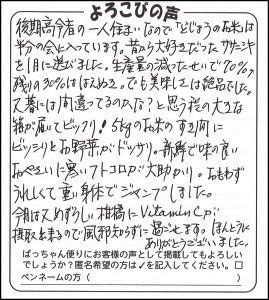 よろこびの声
後期高令者の一人住まいなので「どじょうのお米」は
半分の会に入っています。昔から大好きだったササニシキ
を1月に選びました。生産量の減ったせいで70%。
残りの30%ははえぬき。でも美味しさは絶品でした。
又暮には間違ってるのかな？と思う程の大きな
箱が届いてビックリ！5kgのお米のすき間に
ビッシリとお野菜がドッサリ。新鮮で味の良い
おやさいに寒いトコロが大助かり。おもわず
うれしくて重い身体でジャンプしました。
今回は又めずらしい柑橘にVitaminCが
摂取出来るので風邪知らずに過ごせます。ほんとうに
ありがとうございました。
ばっちゃん便りにお客様の声として掲載してもよろしい
でしょうか？匿名希望の方は✓を記入してください。□
ペンネームの方（　　　　　　　　　　）